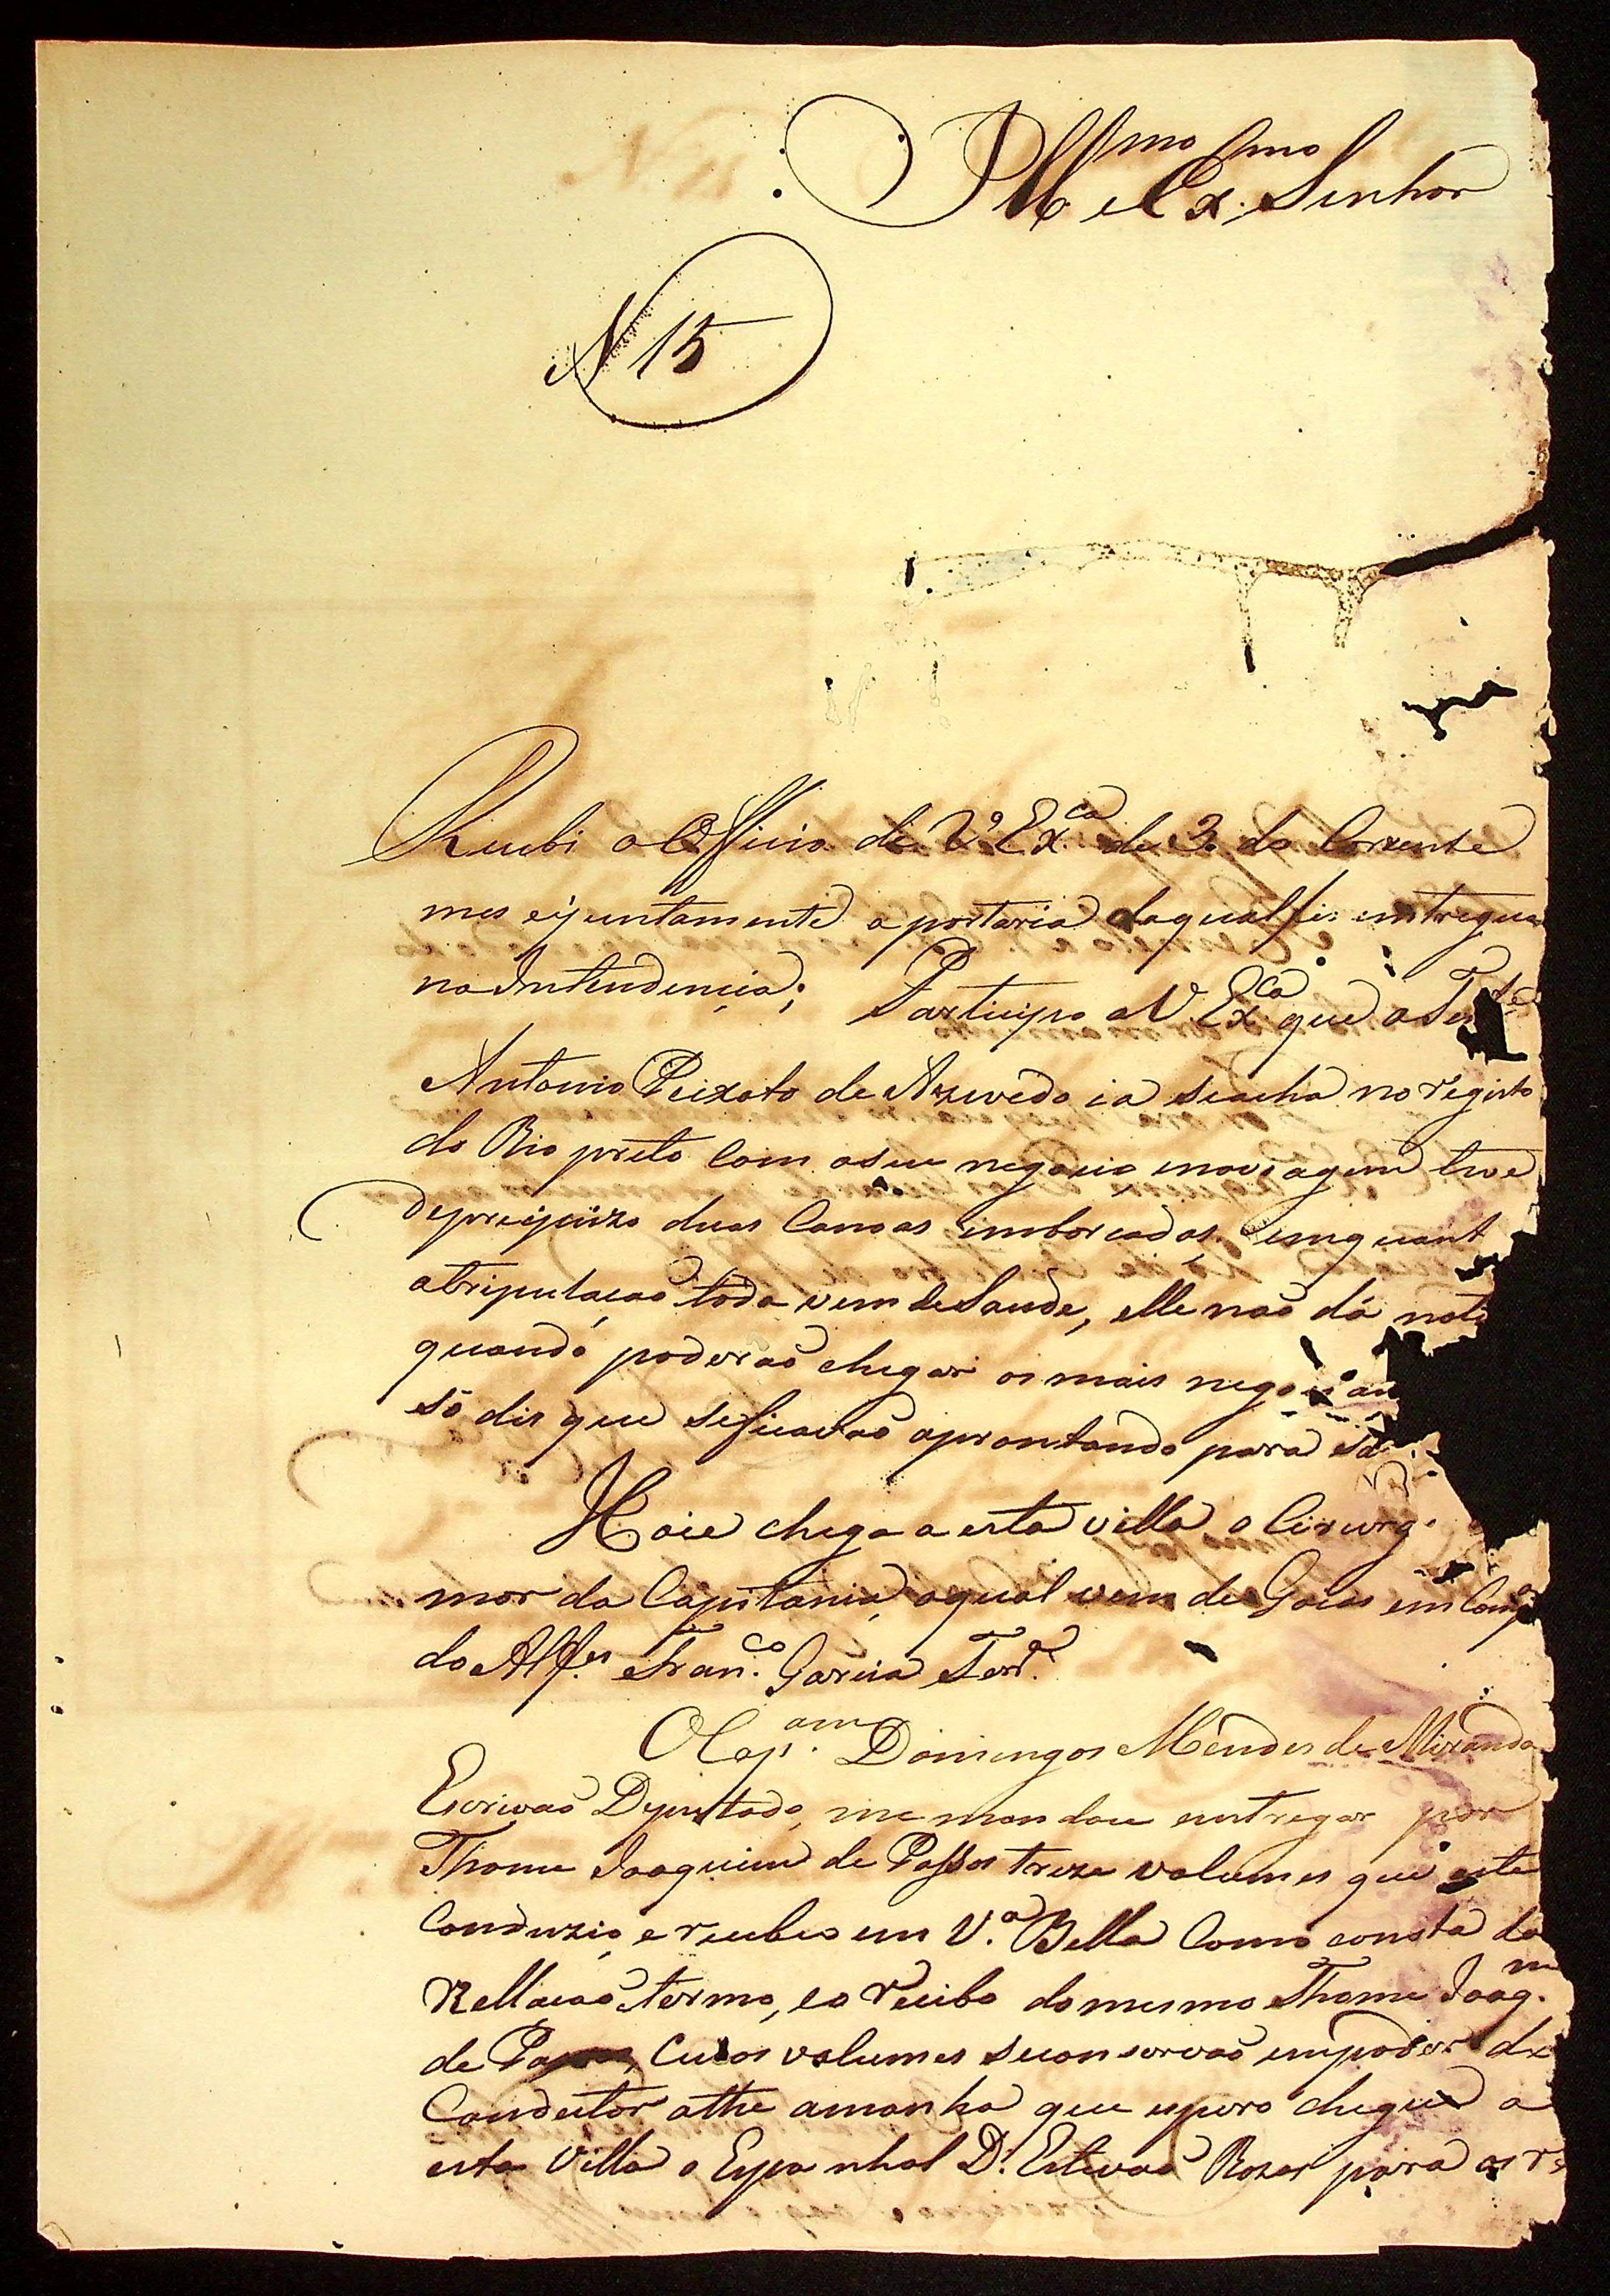 Ill.mo e Ex.mo Senhor
N 15
Recebi o Officio de V.ª Ex.ca de 3 do Corrente
mes ejuntamente a portaria daqual fis entregua
na Intendencia; Participo a V. Ex.ca que o Ten.te
Antonio Peixoto de Azevedo ia seacha no registo
do Rio preto Com oseu negocio enavegaçaõ teve
deprejuizo duas Canoas emborcadas emquant
atripulacaõ toda vem deSaude, elle naõ dá noti
quando poderaõ chegar os mais negocian
só dis que seficavaõ aprontando para sa
Hoie chega a esta villa o Cirurg
mor da Capitania, oqual vem de Goias em Comp.ª
do Alf.es Fran.co Garcia
O Cap.am Domingos Mendes de Miranda
Escrivaõ Deputado, me mandou entregar por
Thome Joaquim de Passos treze volumes que este
Conduzio, e recebeo em V.ª Bella Como consta da
Rellacaõ termo, eo recibo domesmo Thome Joaq.m
de Passos, Cuios volumes seconservaõ empoder do
Condutor athe amanha que espero chegue a
esta Villa o Espanhol D. Estevaõ Rozas para os r